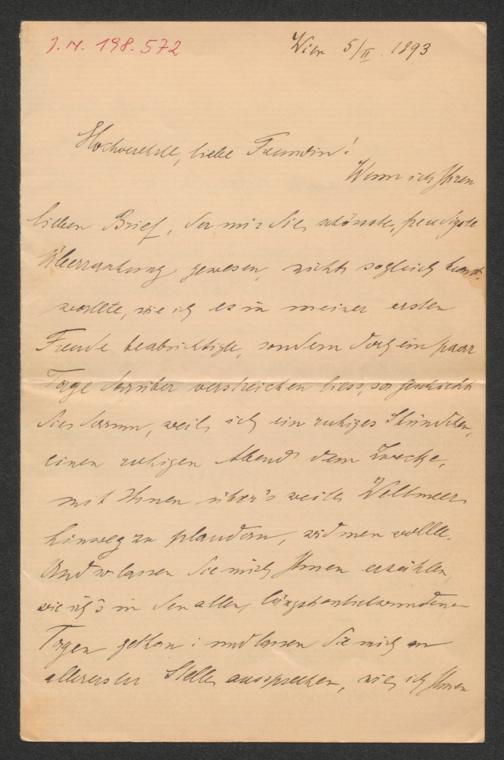 J.N. 198.572
Wien 5/II. 1893
Hochverehrte, liebe Freundin!
Wenn ich Ihren
lieben Brief, der mir die schönste, freudigste
Überraschung gewesen, nicht sogleich beant-
wortete, wie ich es in meiner ersten
Freude beabsichtigte, sondern doch ein paar
Tage darüber verstreichen liess, so geschieht
dies darum, weil ich ein ruhiges Stündchen,
einen ruhigen Abend dem Zwecke,
mit Ihnen über's weite Weltmeer
hinweg zu plaudern, widmen wollte.
Und so lassen Sie mich Ihnen erzählen,
wie ich's in den alten, längstentschwundenen
Tagen gethan; und lassen Sie mich an
allererster Stelle aussprechen, wie ich Ihnen